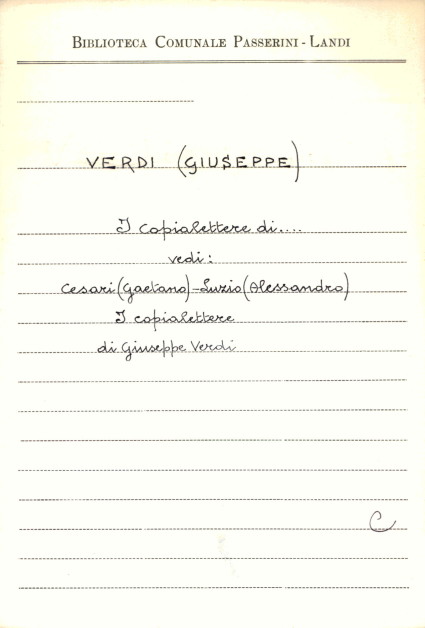 BIBLIOTECA COMUNALE PASSERINI - LANDI
VERDI (GIUSEPPE)
I copialettere di....
vedi:
Cesari (Gaetano) - Luzio (Alessandro)
I copialettere
di Giuseppe Verdi
C